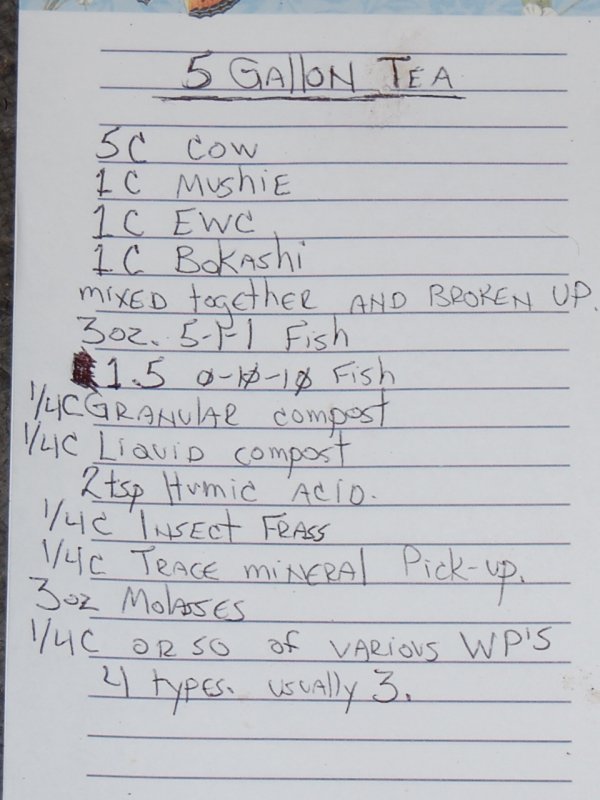 5 GallON TEA
5C COW
1C MushiE
1C EWC
1C BOKAShi
mixED together AND BROKEN UP.
3oz. 5-1-1 Fish
1.5 0-10-10 Fish
1/4C GRANulAR compost
1/4C Liquid compost
2tsp Humic ACID.
1/4C INSECT FRASS
1/4C TRACE miNERAl Pick-up.
3oz MolASSES
1/4C OR SO of VARIOUS WP'S
4 types. usually 3.